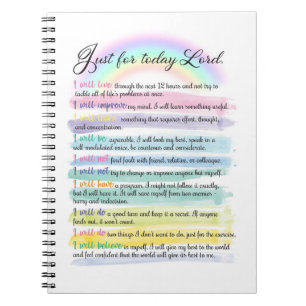 Just for today Lord.
I will live through the next 12 hours and not try to
tackle all of life's problems at once.
I will improve my mind. I will learn something useful.
I will learn something that requires effort, thought,
and concentration.
I will be agreeable. I will look my best, speak in a
well modulated voice, be courteous and considerate.
I will not find fault with friend, relative, or colleague.
I will not try to change or improve anyone but myself.
I will have a program. I might not follow it exactly,
but I will have it. I will save myself from two enemies -
hurry and indecision.
I will do a good turn and keep it a secret. If anyone
finds out, it won't count.
I will do two things I don't want to do, just for the exercise.
I will believe in myself. I will give my best to the world and
feel confident that the world will give its best to me.